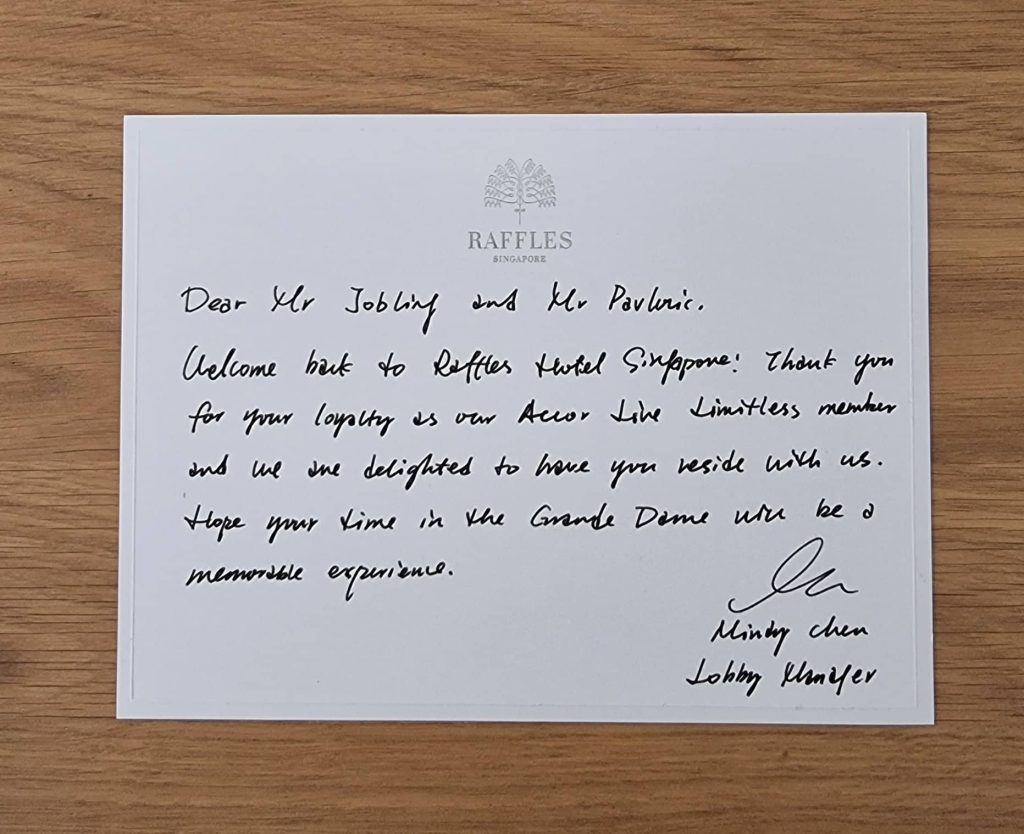 RAFFLES
SINGAPORE
Dear Mr Jobling and Mr Pavlovic.
Welcome back to Raffles Hotel Singapore! Thank you
for your loyalty as our Accor Live Limitless member
and we are delighted to have you reside with us.
Hope your time in the Grande Dame will be a
memorable experience.
Mindy Chen
Lobby Manager